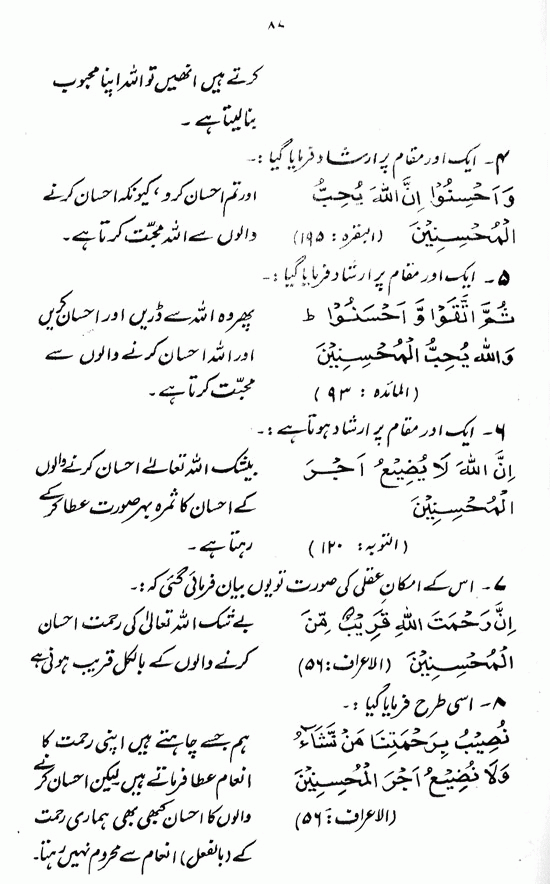 ۸۷
کرتے ہیں انھیں تو اللہ اپنا محبوب
بنا لیتا ہے ۔
۴۔ ایک اور مقام پر ارشاد فرمایا گیا :۔
وَاَحْسِنُوْا اِنَّ اللّٰهَ يُحِبُّ
الْمُحْسِنِيْنَ (البقرہ : ۱۹۵)
اور تم احسان کرو ، کیونکہ احسان کرنے
والوں سے اللہ محبّت کرتا ہے۔
۵۔ ایک اور مقام پر ارشاد فرمایا گیا :۔
ثُمَّ اتَّقَوْا وَّ اَحْسَنُوْا ط
وَاللّٰهُ يُحِبُّ الْمُحْسِنِيْنَ
(المائدہ : ۹۳)
پھر وہ اللہ سے ڈریں اور احسان کریں
اور اللہ احسان کرنے والوں سے
محبّت کرتا ہے۔
۶۔ ایک اور مقام پر ارشاد ہوتا ہے :۔
اِنَّ اللّٰهَ لَا يُضِيْعُ اَجْرَ
الْمُحْسِنِيْنَ
(التوبہ : ۱۲۰)
بیشک اللہ تعالےٰ احسان کرنے والوں
کے احسان کا ثمرہ بہر صورت عطا کرکے
رہتا ہے۔
۷۔ اس کے امکانِ عقلی کی صورت تو یوں بیان فرمائی گئی کہ :۔
اِنَّ رَحْمَتَ اللّٰهِ قَرِيْبٌ مِّنَ
الْمُحْسِنِيْنَ (الاعراف : ۵۶)
بے شک اللہ تعالیٰ کی رحمت احسان
کرنے والوں کے بالکل قریب ہوتی ہے
۸۔ اسی طرح فرمایا گیا :۔
نُصِيْبُ بِرَحْمَتِنَا مَنْ نَّشَآءُ
وَلَا نُضِيْعُ اَجْرَ الْمُحْسِنِيْنَ
(الاعراف : ۵۶)
ہم جسے چاہتے ہیں اپنی رحمت کا
انعام عطا فرماتے ہیں لیکن احسان کرنے
والوں کا احسان کبھی بھی ہماری رحمت
کے (بالفعل) انعام سے محروم نہیں رہتا۔